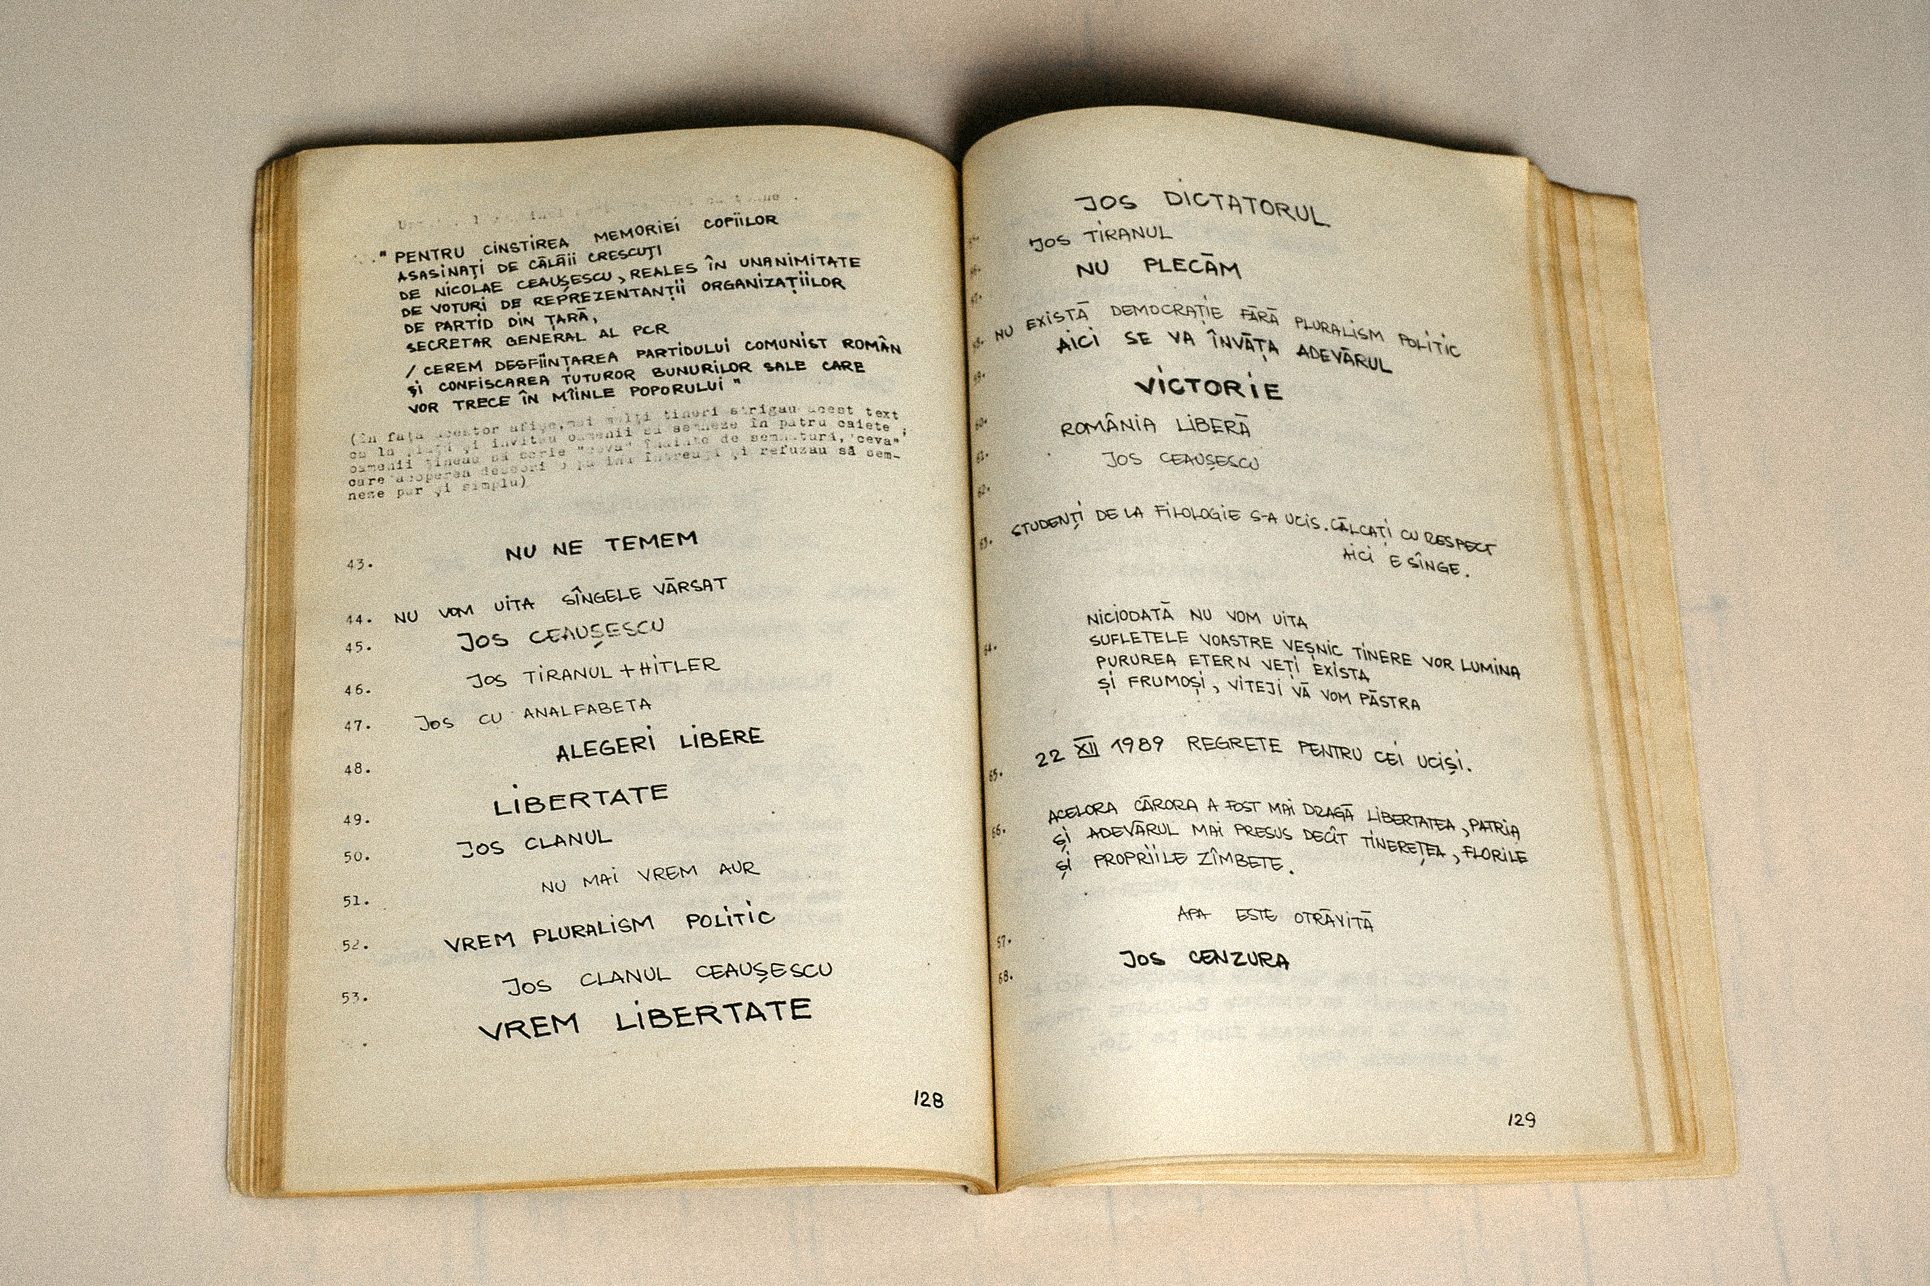 " PENTRU CINSTIREA MEMORIEI COPIILOR
ASASINAȚI DE CĂLĂII CRESCUȚI
DE NICOLAE CEAUȘESCU, REALES ÎN UNANIMITATE
DE VOTURI DE REPREZENTANȚII ORGANIZAȚIILOR
DE PARTID DIN ȚARĂ,
SECRETAR GENERAL AL PCR
/ CEREM DESFIINȚAREA PARTIDULUI COMUNIST ROMÂN
ȘI CONFISCAREA TUTUROR BUNURILOR SALE CARE
VOR TRECE ÎN MÎINLE POPORULUI "
(În fața acestor afișe, mai mulți tineri strigau acest text
ca la piață și invitau oamenii să semneze în patru caiete ;
oamenii țineau să scrie "ceva" înainte de semnătură, "ceva"
care acoperea deseori o pagină întreagă și refuzau să sem-
neze pur și simplu)
43. NU NE TEMEM
44. NU VOM UITA SÎNGELE VĂRSAT
45. JOS CEAUȘESCU
46. JOS TIRANUL + HITLER
47. JOS CU ANALFABETA
48. ALEGERI LIBERE
49. LIBERTATE
50. JOS CLANUL
51. NU MAI VREM AUR
52. VREM PLURALISM POLITIC
53. JOS CLANUL CEAUȘESCU
VREM LIBERTATE
128
JOS DICTATORUL
JOS TIRANUL
NU PLECĂM
NU EXISTĂ DEMOCRAȚIE FĂRĂ PLURALISM POLITIC
AICI SE VA ÎNVĂȚA ADEVĂRUL
VICTORIE
60. ROMÂNIA LIBERĂ
61. JOS CEAUȘESCU
62.
63. STUDENȚI DE LA FILOLOGIE S-A UCIS. CĂLCAȚI CU RESPECT
AICI E SÎNGE.
NICIODATĂ NU VOM UITA
64. SUFLETELE VOASTRE VEȘNIC TINERE VOR LUMINA
PURUREA ETERN VEȚI EXISTA
ȘI FRUMOȘI, VITEJI VĂ VOM PĂSTRA
65. 22 XII 1989 REGRETE PENTRU CEI UCIȘI.
66. ACELORA CĂRORA A FOST MAI DRAGĂ LIBERTATEA, PATRIA
ȘI ADEVĂRUL MAI PRESUS DECÎT TINEREȚEA, FLORILE
ȘI PROPRIILE ZÎMBETE.
67. APA ESTE OTRĂVITĂ
68. JOS CENZURA
129